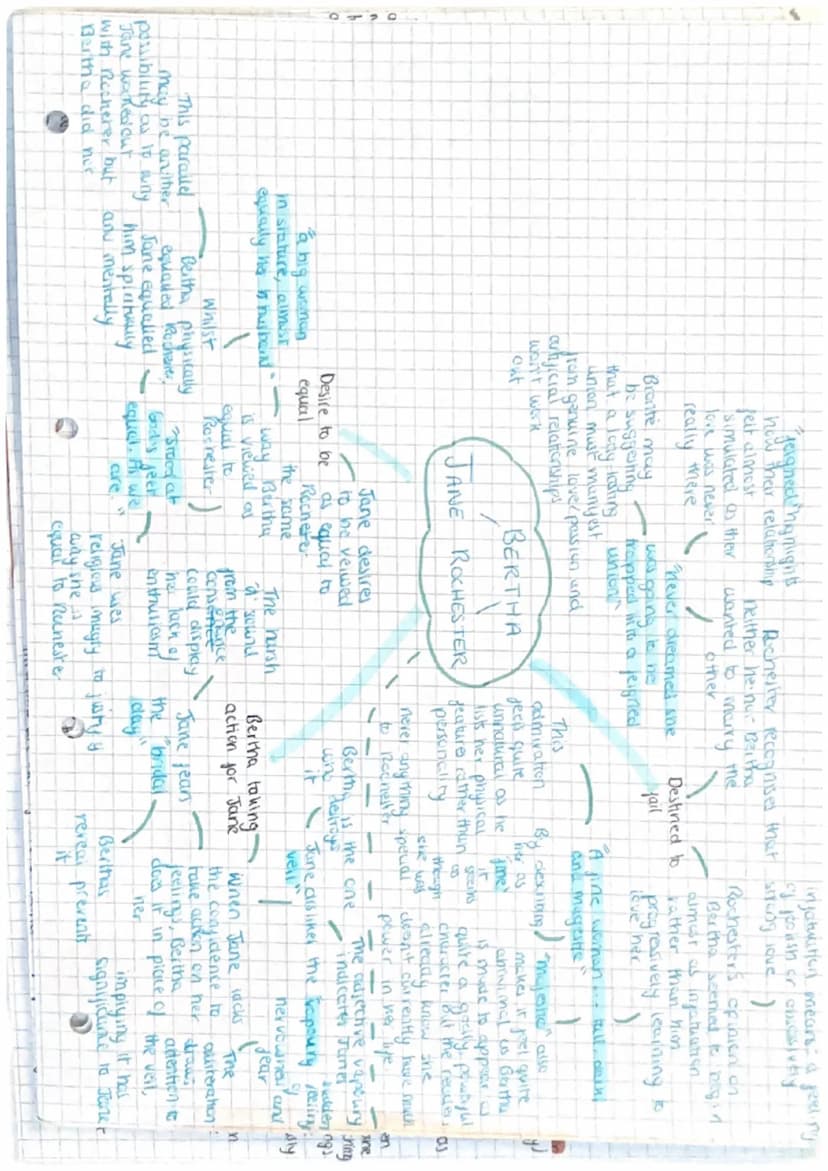 BERTHA
JANE ROCHESTER
Destined to
fail
infatuation means - a feeling
of passion or obsessivity
strong love
Rochester's opinion on
Bertha seemed to begin
almost as infatuation
rather than him
progressively learning to
love her
Rochester recognises that
neither he nor Bertha
wanted to marry the
other
"never dreamed she
was going to be
trapped into a feigned
union"
"feigned" highlights
how their relationship
felt almost
simulated as their
love was never
really there
Brontë may
be suggesting
that a long lasting
union must manifest
from genuine love/passion and
artificial relationships
won't work
out
"A fine woman - tall, dark
and majestic"
This
admiration
feels quite
unnatural as he
lists her physical
features rather than
personality
By describing
her as
"fine"
it
seems
as
though
she was
never anything special
to Rochester
"majestic" also
makes it feel quite
as Bertha
is made to appear as
quite a godly, powerful
character but the readers
already know she
doesn't currently have much
power in her life
Desire to be
equal
Jane desires
to be viewed
as equal to
Rochester
the same
way Bertha
is viewed as
equal to
Rochester
"a big woman
in stature, almost
equally her husband"
Whilst
Bertha physically
equalled Rochester,
Jane equalled
him spiritually
and mentally
This parallel
may be another
possibility as to why
Jane worked out
with Rochester but
Bertha did not
"stood at
God's feet
equal. As we
are."
Jane uses
religious imagery to justify
why she is
equal to Rochester
Bertha taking
action for Jane
When Jane lacks
the confidence to
take action on her
feelings, Bertha
does it in place of
her
Jane fears
the "bridal
day"
The harsh
'd' sound
from the
could display
her lack of
enthusiasm
Bertha's
reveal prevents
it
Bertha is the one
who destroys
it
Jane describes the vapoury
veil"
The adjective vapoury
indicates Jane's
feeling
of
nervousness and
fear
The
obliteration
draws
attention to
the veil,
implying it has
significance to Jane